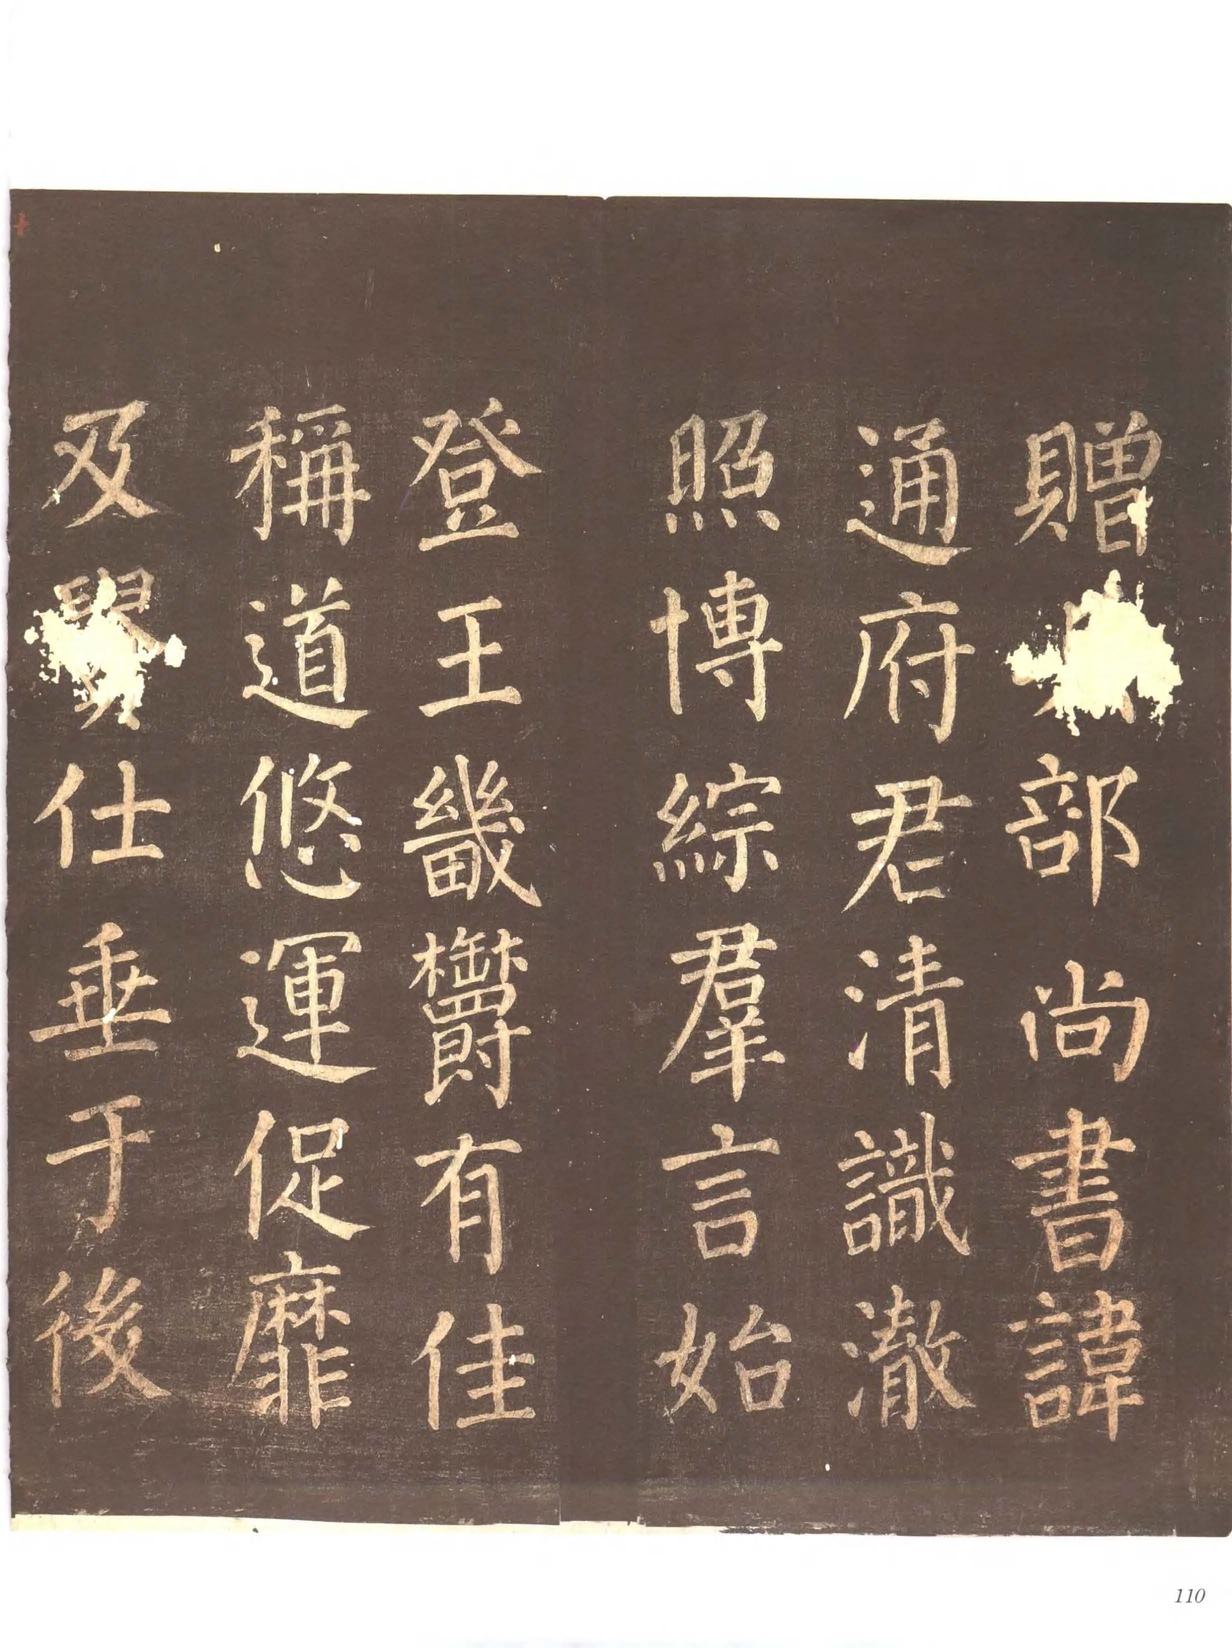 贈部尚書諱
通府君清識澈
照博綜羣言始
登王畿欝有佳
稱道悠運促靡
及仕垂于後
110